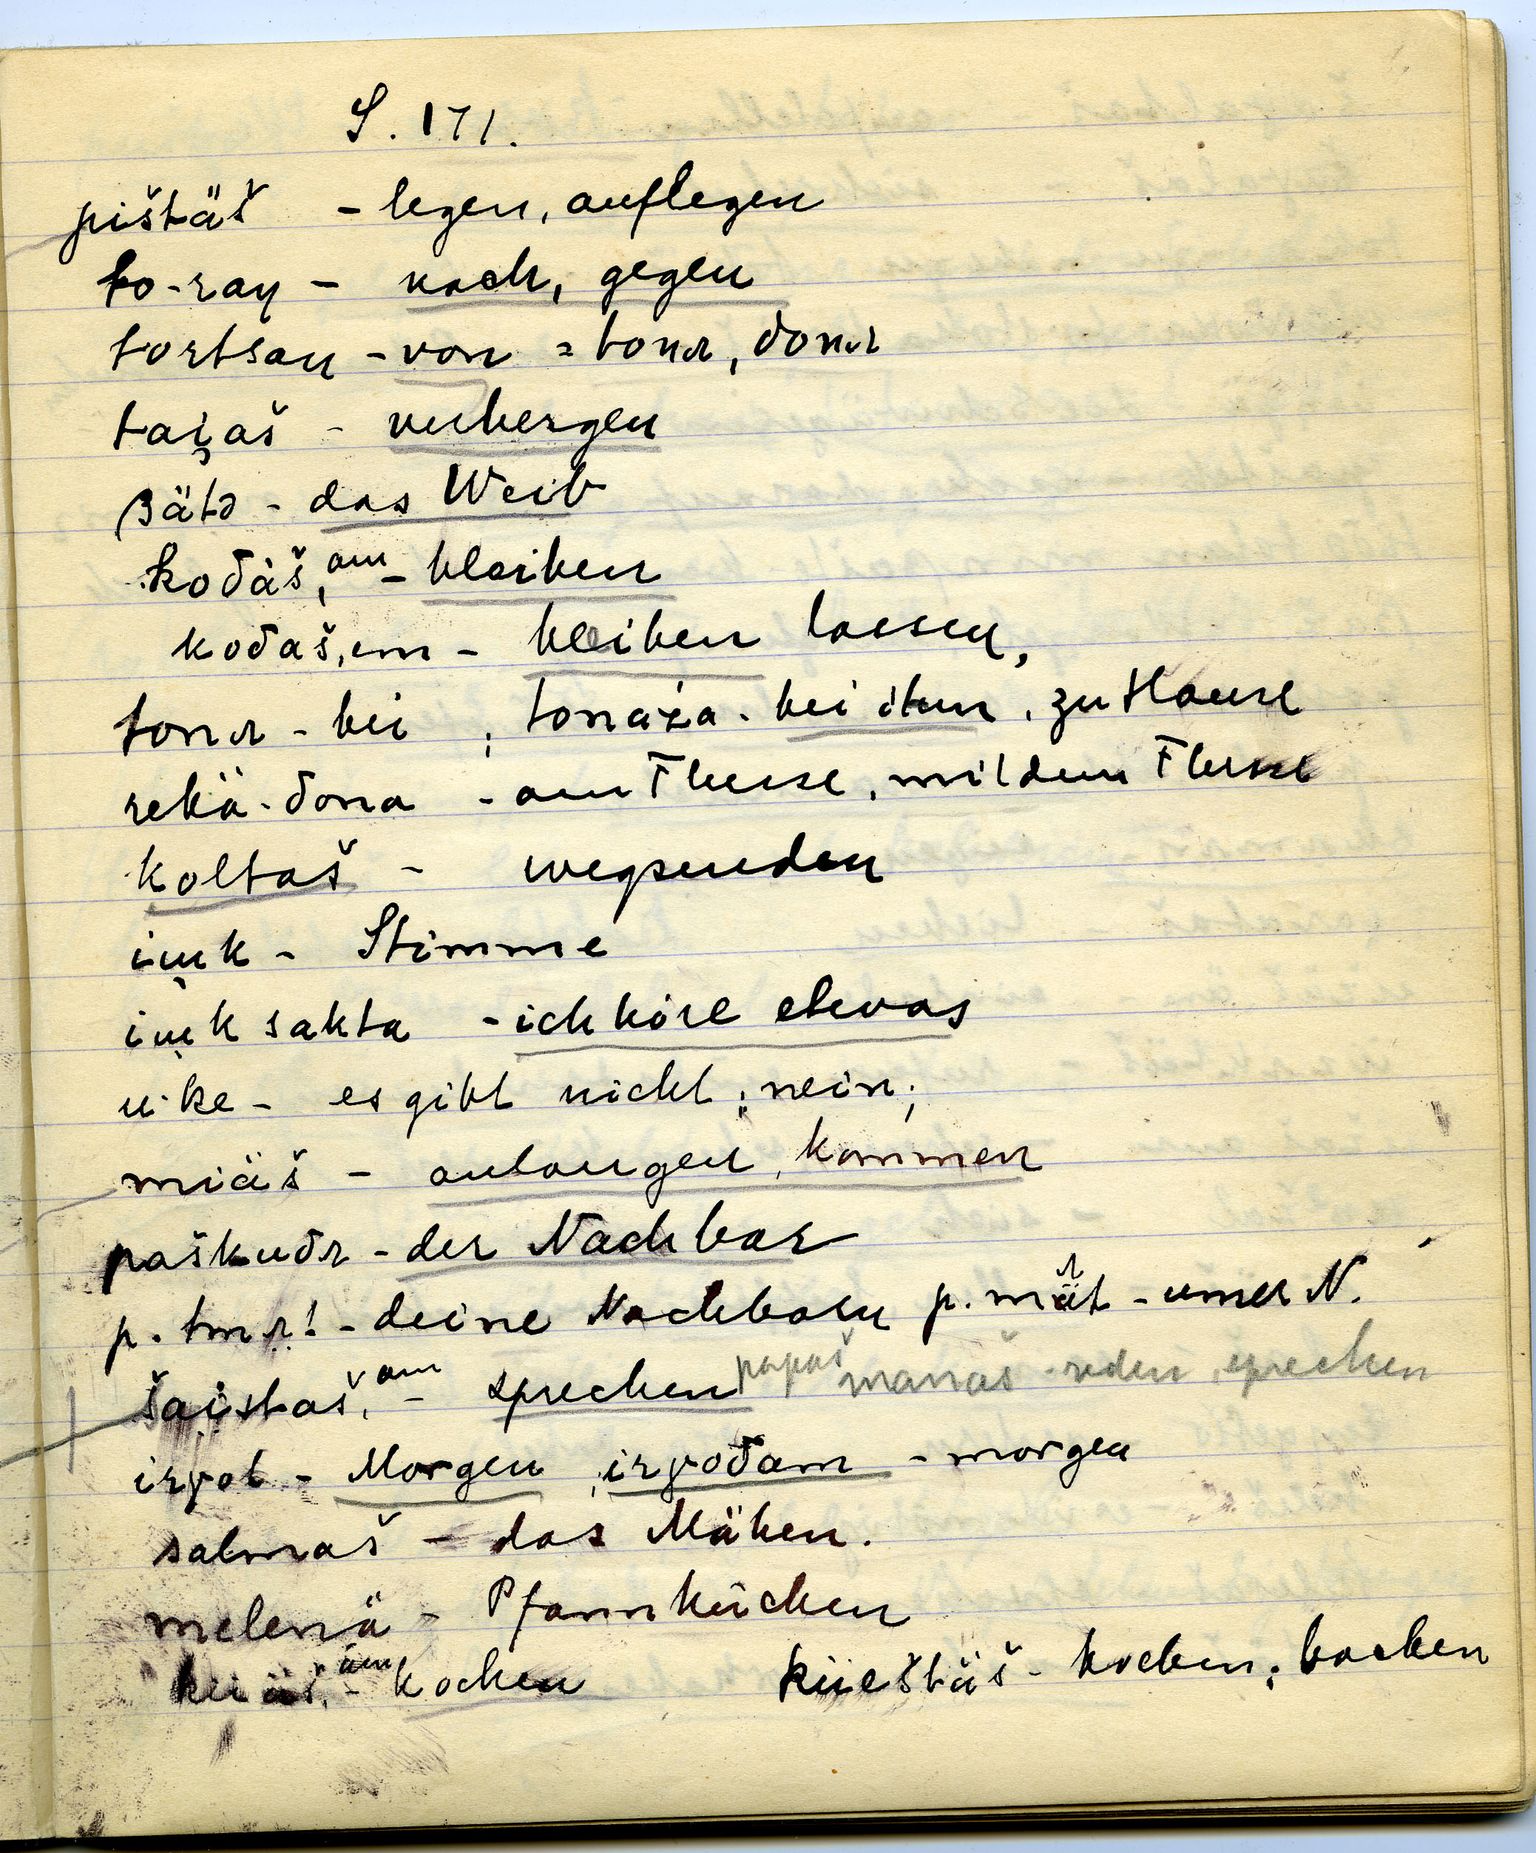 S. 171.
pištäš - legen, auflegen
to-ray - nach, gegen
tortsaŋ - von = tonɹ, δonɹ
taįaš - verbergen
βätə - das Weib
koδàš, am - bleiben
koδaš, em - bleiben lassen,
tonɹ - bei ; tonaža - bei ihm, zu Hause
rekä-δona - am Flusse, mit dem Flusse
koltaš - wegsenden
iu̯k - Stimme
iu̯k sakta - ich höre etwas
uke - es gibt nicht ; nein;
miäš - anlangen, kommen
paškuδɹ - der Nachbar
p. tmɹ! - deine Nachbarn p. mɹ̈ät - unser N.
šai̯štaš, am - sprechen popaš manaš - reden, sprechen
irγot - Morgen, irγoδam - morgen
salmaš - das Mähen.
melenä - Pfannkuchen
am - kochen küeštäš - kochen ; backen